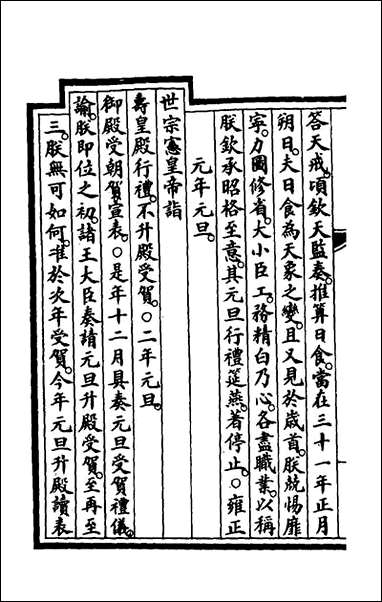 答天戒。頃欽天監奏。推算日食。當在三十一年正月
朔日。夫日食為天象之變。且又見於歲首。朕兢惕靡
寧。力圖修省。大小臣工。務精白乃心。各盡職業。以稱
朕欽承昭格至意。其元旦行禮筵燕。著停止。○雍正
元年元旦。
世宗憲皇帝詣
壽皇殿行禮。不升殿受賀。○二年元旦。
御殿受朝賀宣表。○是年十二月具奏元旦受賀禮儀。
諭。朕即位之初。諸王大臣奏請元旦升殿受賀。至再至
三。朕無可如何。准於次年受賀。今年元旦升殿讀表